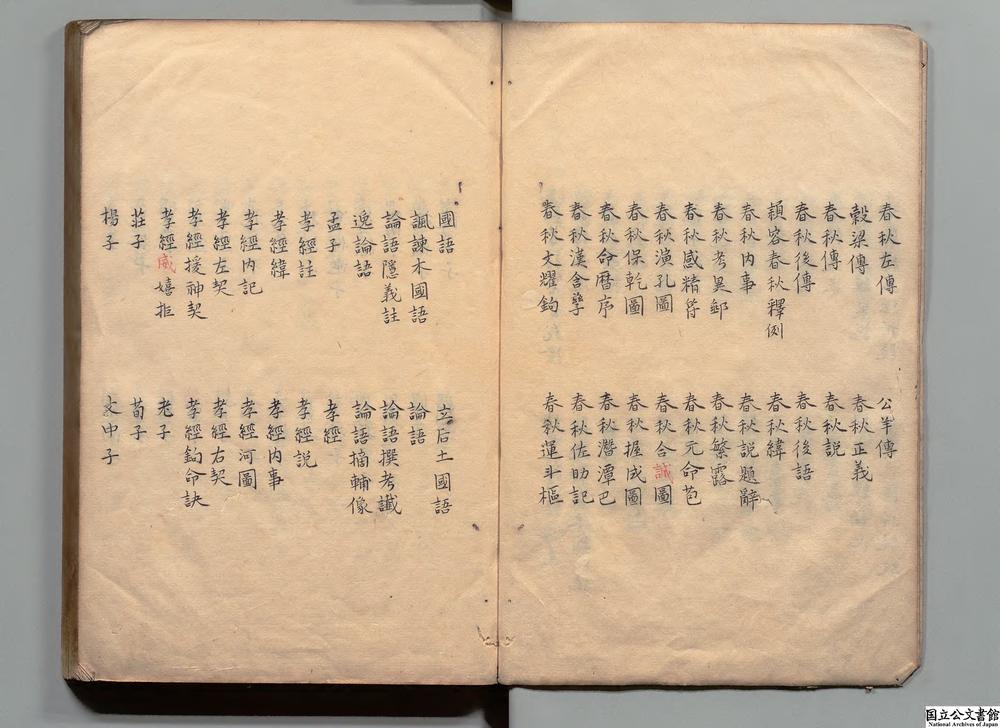 春秋左傳
公羊傳
穀梁傳
春秋正義
春秋傳
春秋說
春秋後傳
春秋後語
頴容春秋釋例
春秋緯
春秋內事
春秋說題辭
春秋考異郵
春秋繁露
春秋感精符
春秋元命苞
春秋演孔圖
春秋合誠圖
春秋保乾圖
春秋握成圖
春秋命曆序
春秋潛潭巴
春秋漢含孳
春秋佐助記
春秋文耀鉤
春秋運斗樞
國語
立后土國語
諷諫木國語
論語
論語隱義註
論語撰考讖
逸論語
論語摘輔像
孟子
孝經
孝經註
孝經說
孝經緯
孝經內事
孝經內記
孝經河圖
孝經左契
孝經右契
孝經援神契
孝經鉤命訣
孝經威嬉拒
老子
莊子
荀子
楊子
文中子
国立公文書館
National Archives of Japan